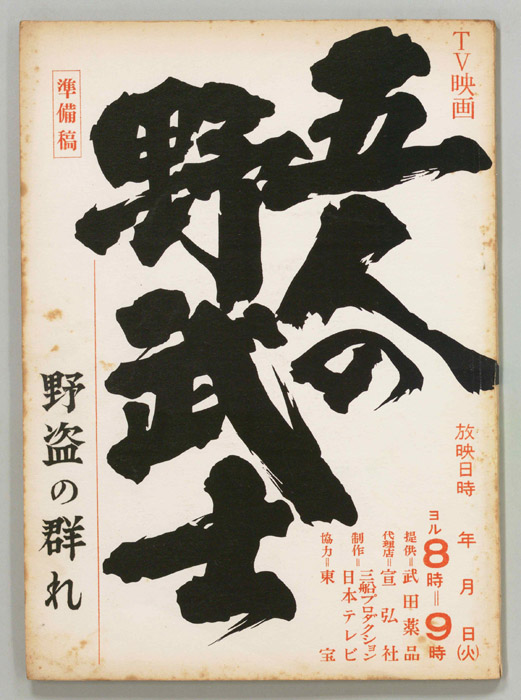 TV映画
五人の
野武士
準備稿
野盗の群れ
放映日時　年　月　日(火)
ヨル8時＝9時
提供＝武田薬品
代理店＝宣弘社
制作＝三船プロダクション
日本テレビ
協力＝東宝